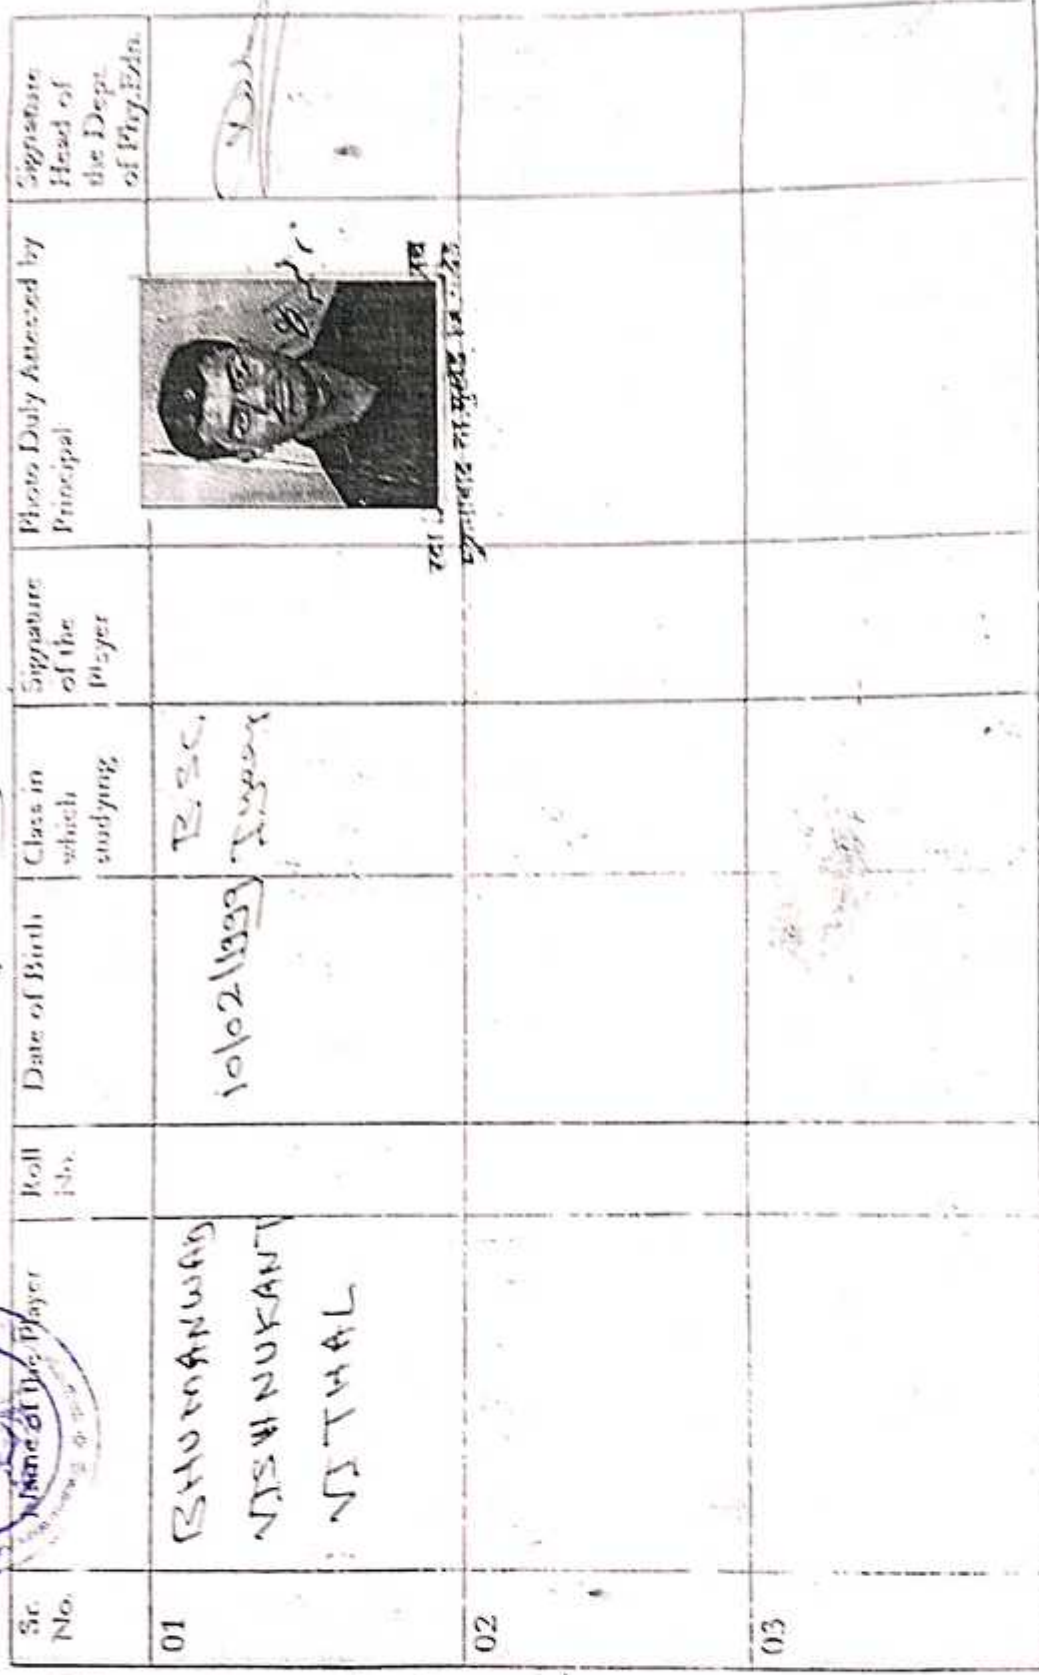 Sr.
No.
Name of the Player
Roll
No.
Date of Birth
Class in
which
studying
Signature
of the
Player
Photo Duly Attested by
Principal
Signature
Head of
the Dept.
of Phy.Edn.
01
BHUMANWAD
VISHNUKANT
VITHAL
10/02/1999
B.SC.
I year
02
03